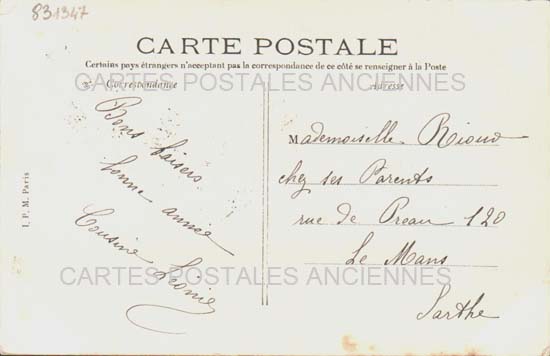 831347
CARTE POSTALE
Certains pays étrangers n'acceptant pas la correspondance de ce côté se renseigner à la Poste
CARTES POSTALES ANCIENNES
Correspondance
Adresse
Bons baisers
bonne année
Cousine Léonie
I. P. M. Paris
Mademoiselle Rioux
chez ses Parents
rue de Preau 120
Le Mans
Sarthe
CARTES POSTALES ANCIENNES
CARTES POSTALES ANCIENNES